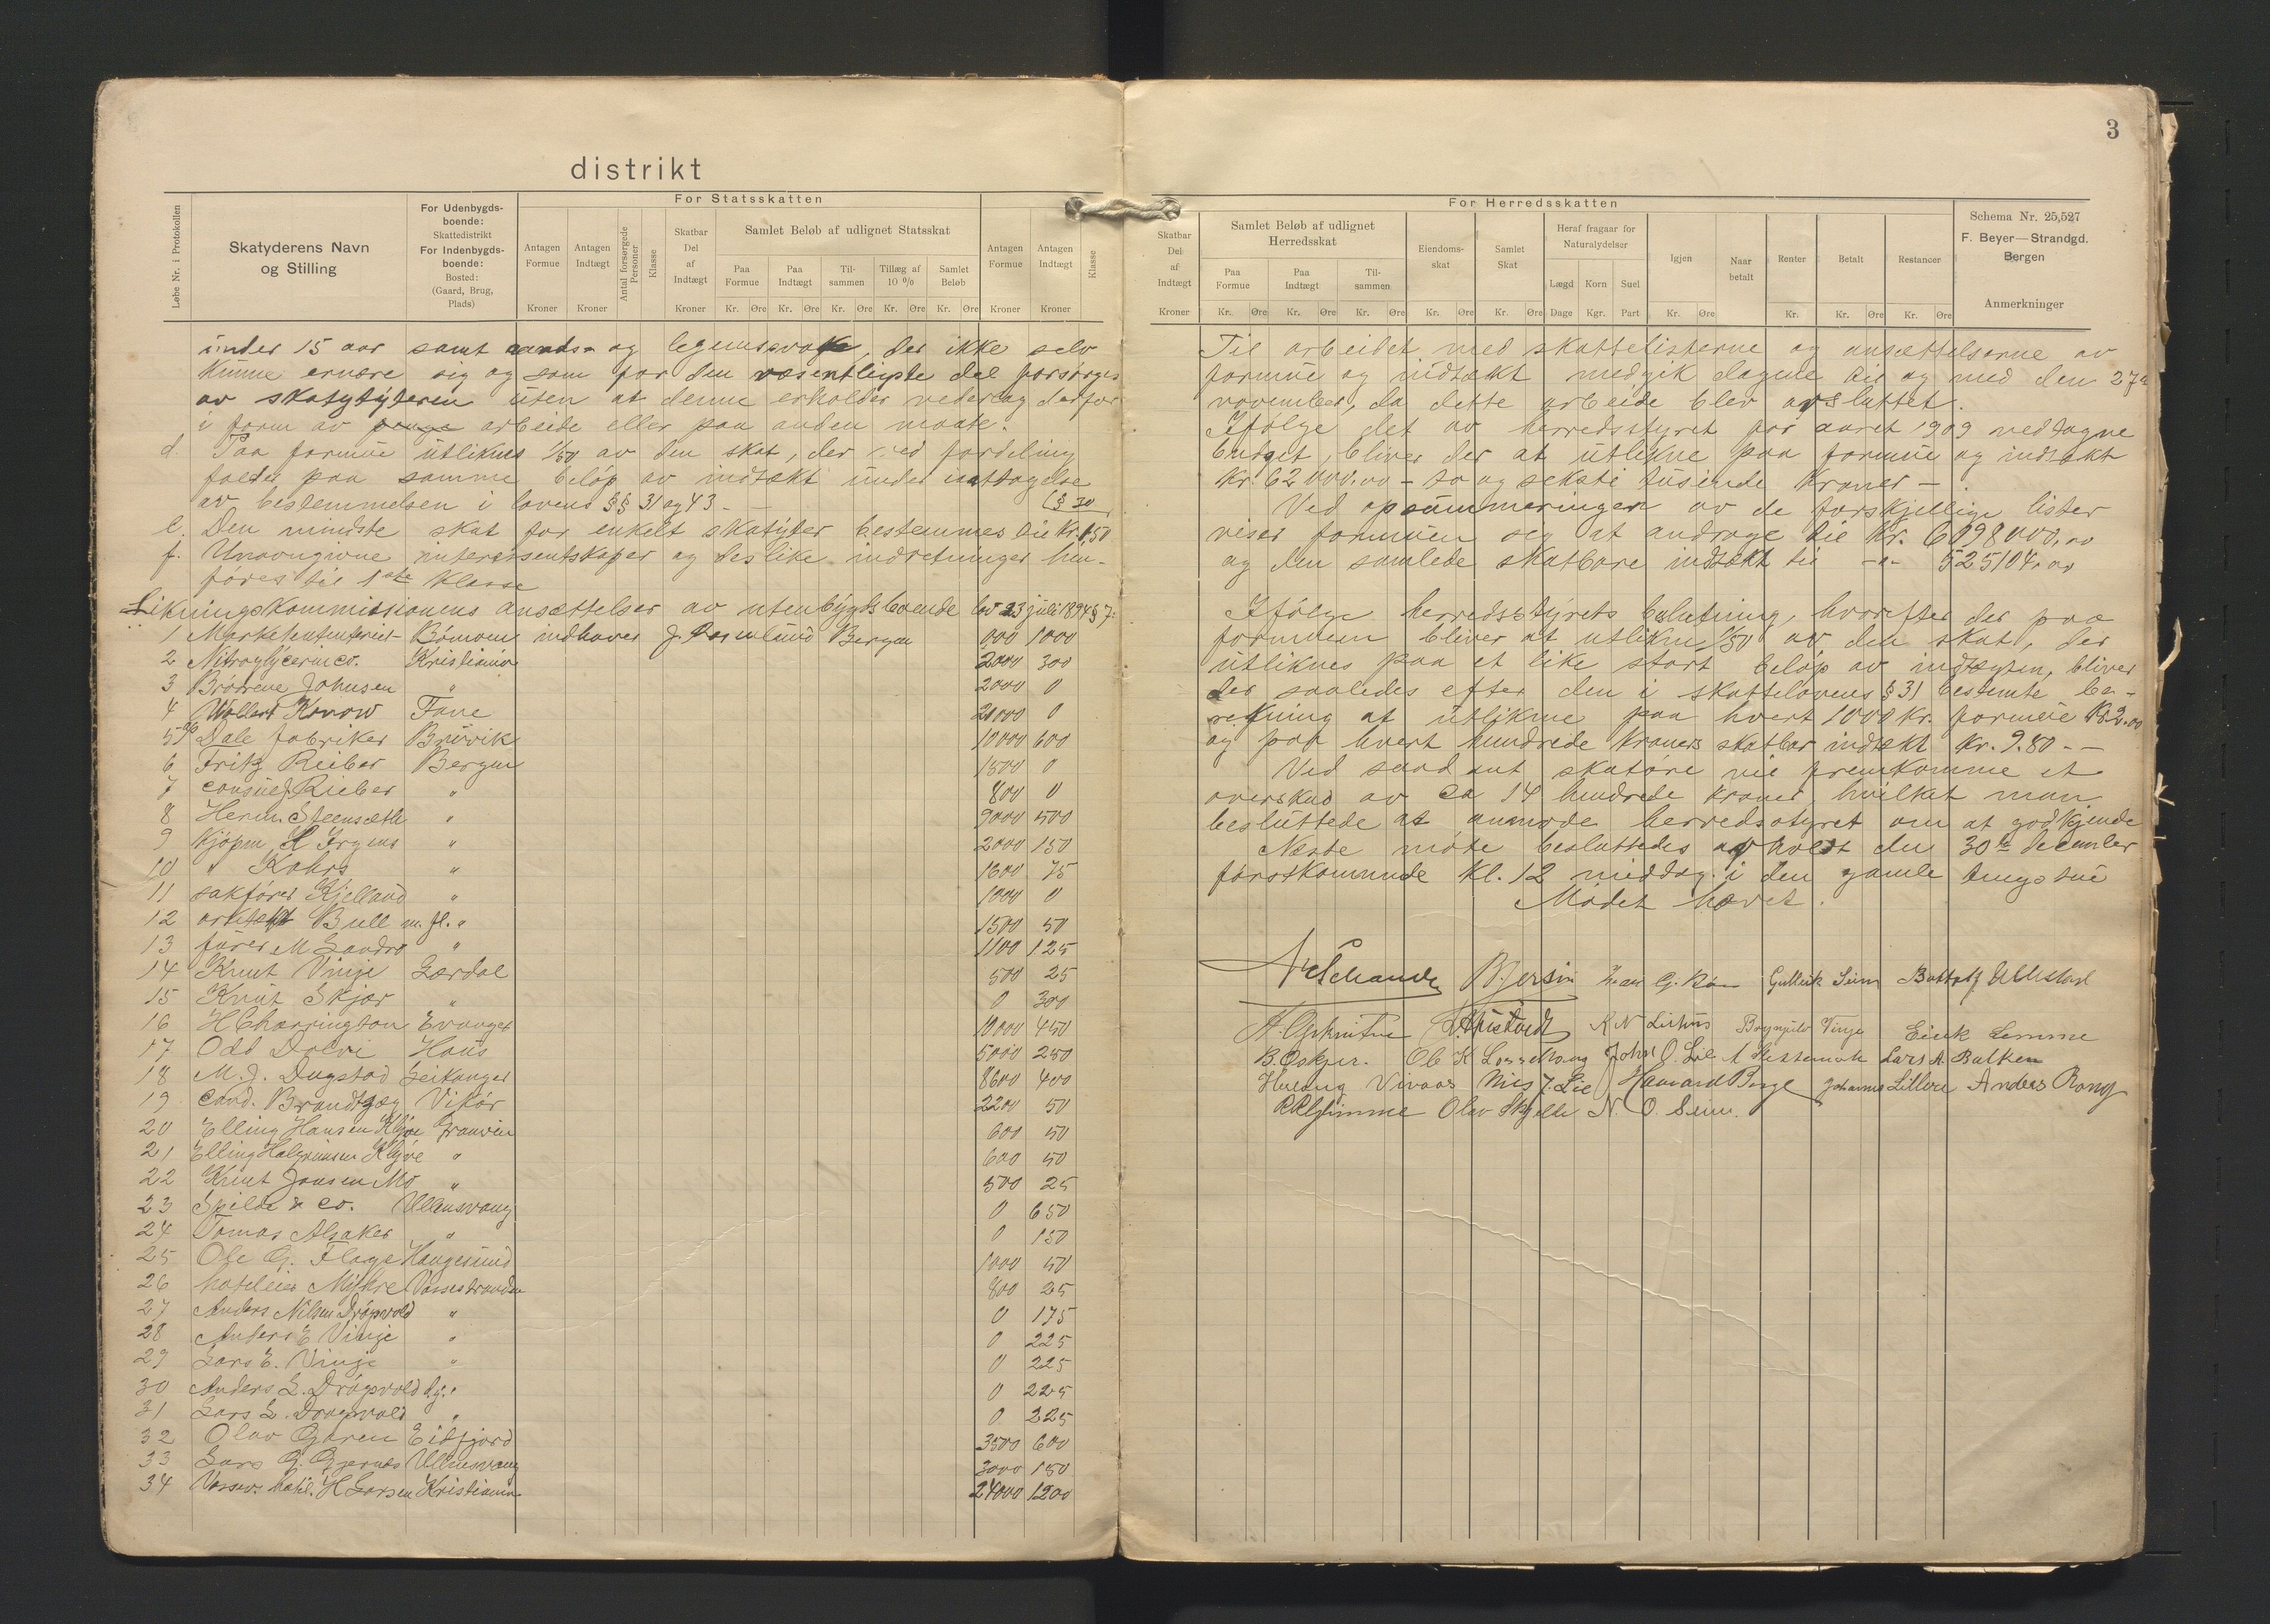 distrikt
Løbe Nr. i Protokollen
Skatyderens Navn
og Stilling
For Udenbygds-
boende:
Skattedistrikt
For Indenbygds-
boende:
Bosted:
(Gaard, Brug,
Plads)
For Statsskatten
Antagen
Formue
Kroner
Antagen
Indtægt
Kroner
Antal forsørgede
Personer
Klasse
Skatbar
Del
af
Indtægt
Kroner
Samlet Beløb af udlignet Statsskat
Paa
Formue
Kr. Øre
Paa
Indtægt
Kr. Øre
Til-
sammen
Kr. Øre
Tillæg af
10 %
Kr. Øre
Samlet
Beløb
Kr. Øre
Antagen
Formue
Kroner
Antagen
Indtægt
Kroner
Klasse
under 15 aar samt aands- og legemssvake, der ikke selv
kunne ernære sig og som for den væsentligste del forsørges
av skatyderen uten at denne erholder vederlag derfor
i form av penge arbeide eller paa anden maate.
d. Paa formue utliknes 1/50 av den skat, der ved fordeling
falder paa samme beløp av indtækt under iagttagelse
av bestemmelsen i lovens §§ 31 og 43. (§ 30
e. Den mindste skat for enkelt skatyter bestemmes til Kr. 1,50
f. Unavngivne interessentskaper og deslike indretninger hen-
føres til 1ste klasse
Likningskommissionens ansættelser av utenbygdsboende lov 23 juli 1894 § 7:
1 Bømoen indhaver J. Bergen 1000
2 Nitroglycerinco. Kristiania 2000 300
3 Brødrene Johnsen " 2000 0
4 Wollert Konow Fane 20000 0
5 Dale fabriker Bruvik 10000 600
6 Fritz Rieber Bergen 1500 0
7 consul J Rieber " 800 0
8 Herm. Steensæth " 9000 500
9 Kjøpm. H Irgens " 2000 150
10 " Kahrs " 1600 75
11 sakfører Kjelland " 1000 0
12 arkitekt Bull m. fl. " 1500 50
13 fører M Sandro " 1100 125
14 Knut Vinje Lærdal 500 25
15 Knut Skjær " 0 300
16 H Charrington Evanger 10000 450
17 Odd Dalvi Haus 5000 250
18 M. J. Dugstad Leikanger 8600 400
19 cand. Brandtzæg Vikør 2200 50
20 Elling Hansen Kløve Granvin 600 50
21 Elling Halgrimsen Kløve " 600 50
22 Knut Jonsen Mo " 500 25
23 Spilde & co. Ullensvang 0 650
24 Tomas Alsaker " 0 150
25 Ole G. Flage Haugesund 1000 50
26 hoteleier Myhre Vossestranden 800 25
27 Anders Nilsen Drøgsvold " 0 175
28 Anders E Vinje " 0 225
29 Lars E. Vinje " 0 225
30 Anders L. Drøgsvold dy. " 0 225
31 Lars L. Drøgsvold " 0 225
32 Olav Garen Eidfjord 3500 600
33 Lars G. Gjernes Ullensvang 3000 150
34 Vossev. hotel. H Larsen Kristiania 24000 1200
3
For Herredsskatten
Skatbar
Del
af
Indtægt
Kroner
Samlet Beløb af udlignet
Herredsskat
Paa
Formue
Kr. Øre
Paa
Indtægt
Kr. Øre
Til-
sammen
Kr. Øre
Eiendoms-
skat
Kr. Øre
Samlet
Skat
Kr. Øre
Heraf fragaar for
Naturalydelser
Lægd
Dage
Korn
Kgr.
Suel
Part
Igjen
Kr. Øre
Naar
betalt
Renter
Kr.
Betalt
Kr. Øre
Restancer
Kr. Øre
Schema Nr. 25,527
F. Beyer—Strandgd.
Bergen
Anmerkninger
Til arbeidet med skattelisterne og ansættelserne av
formue og indtækt medgik dagene til og med den 27de
november, da dette arbeide blev avsluttet.
Ifølge det av herredsstyret for aaret 1909 vedtagne
budget, bliver der at utlikne paa formue og indtækt
Kr. 62000,00 - to og seksti tusinde Kroner -
Ved opsummeringen av de forskjellige lister
viser formuen sig at andrage til Kr. 6098000,00
og den samlede skatbare indtækt til -"- 525104,00
Ifølge herredsstyrets beslutning, hvorefter der paa
formuen bliver at utlikne 1/50 av den skat, der
utliknes paa et like stort beløp av indtægten, bliver
der saaledes efter den i skattelovens § 31 bestemte be-
regning at utlikne paa hvert 1000 kr. formue Kr. 2.00
og paa hvert hundrede kroners skatbar indtækt Kr. 9.80 - -
Ved saadant skatøre vil fremkomme et
overskud av ca 14 hundrede kroner, hvilket man
besluttede at anmode herredsstyret om at godkjende
Næste møte besluttedes avholdt den 30te december
førstkommende kl. 12 middag i den gamle tingstue
Mødet hævet.
B Jersin Gulleik Seim
K N Lirhus Brynjulv Vinje Eirik Lemme
B. Oskjer. John O. Lie Lars A. Bakken
Nils J. Lie Haavard Berge Johannes Lillere Anders Rong
R R Gjimme Olav Skjelle N. O. Seim.